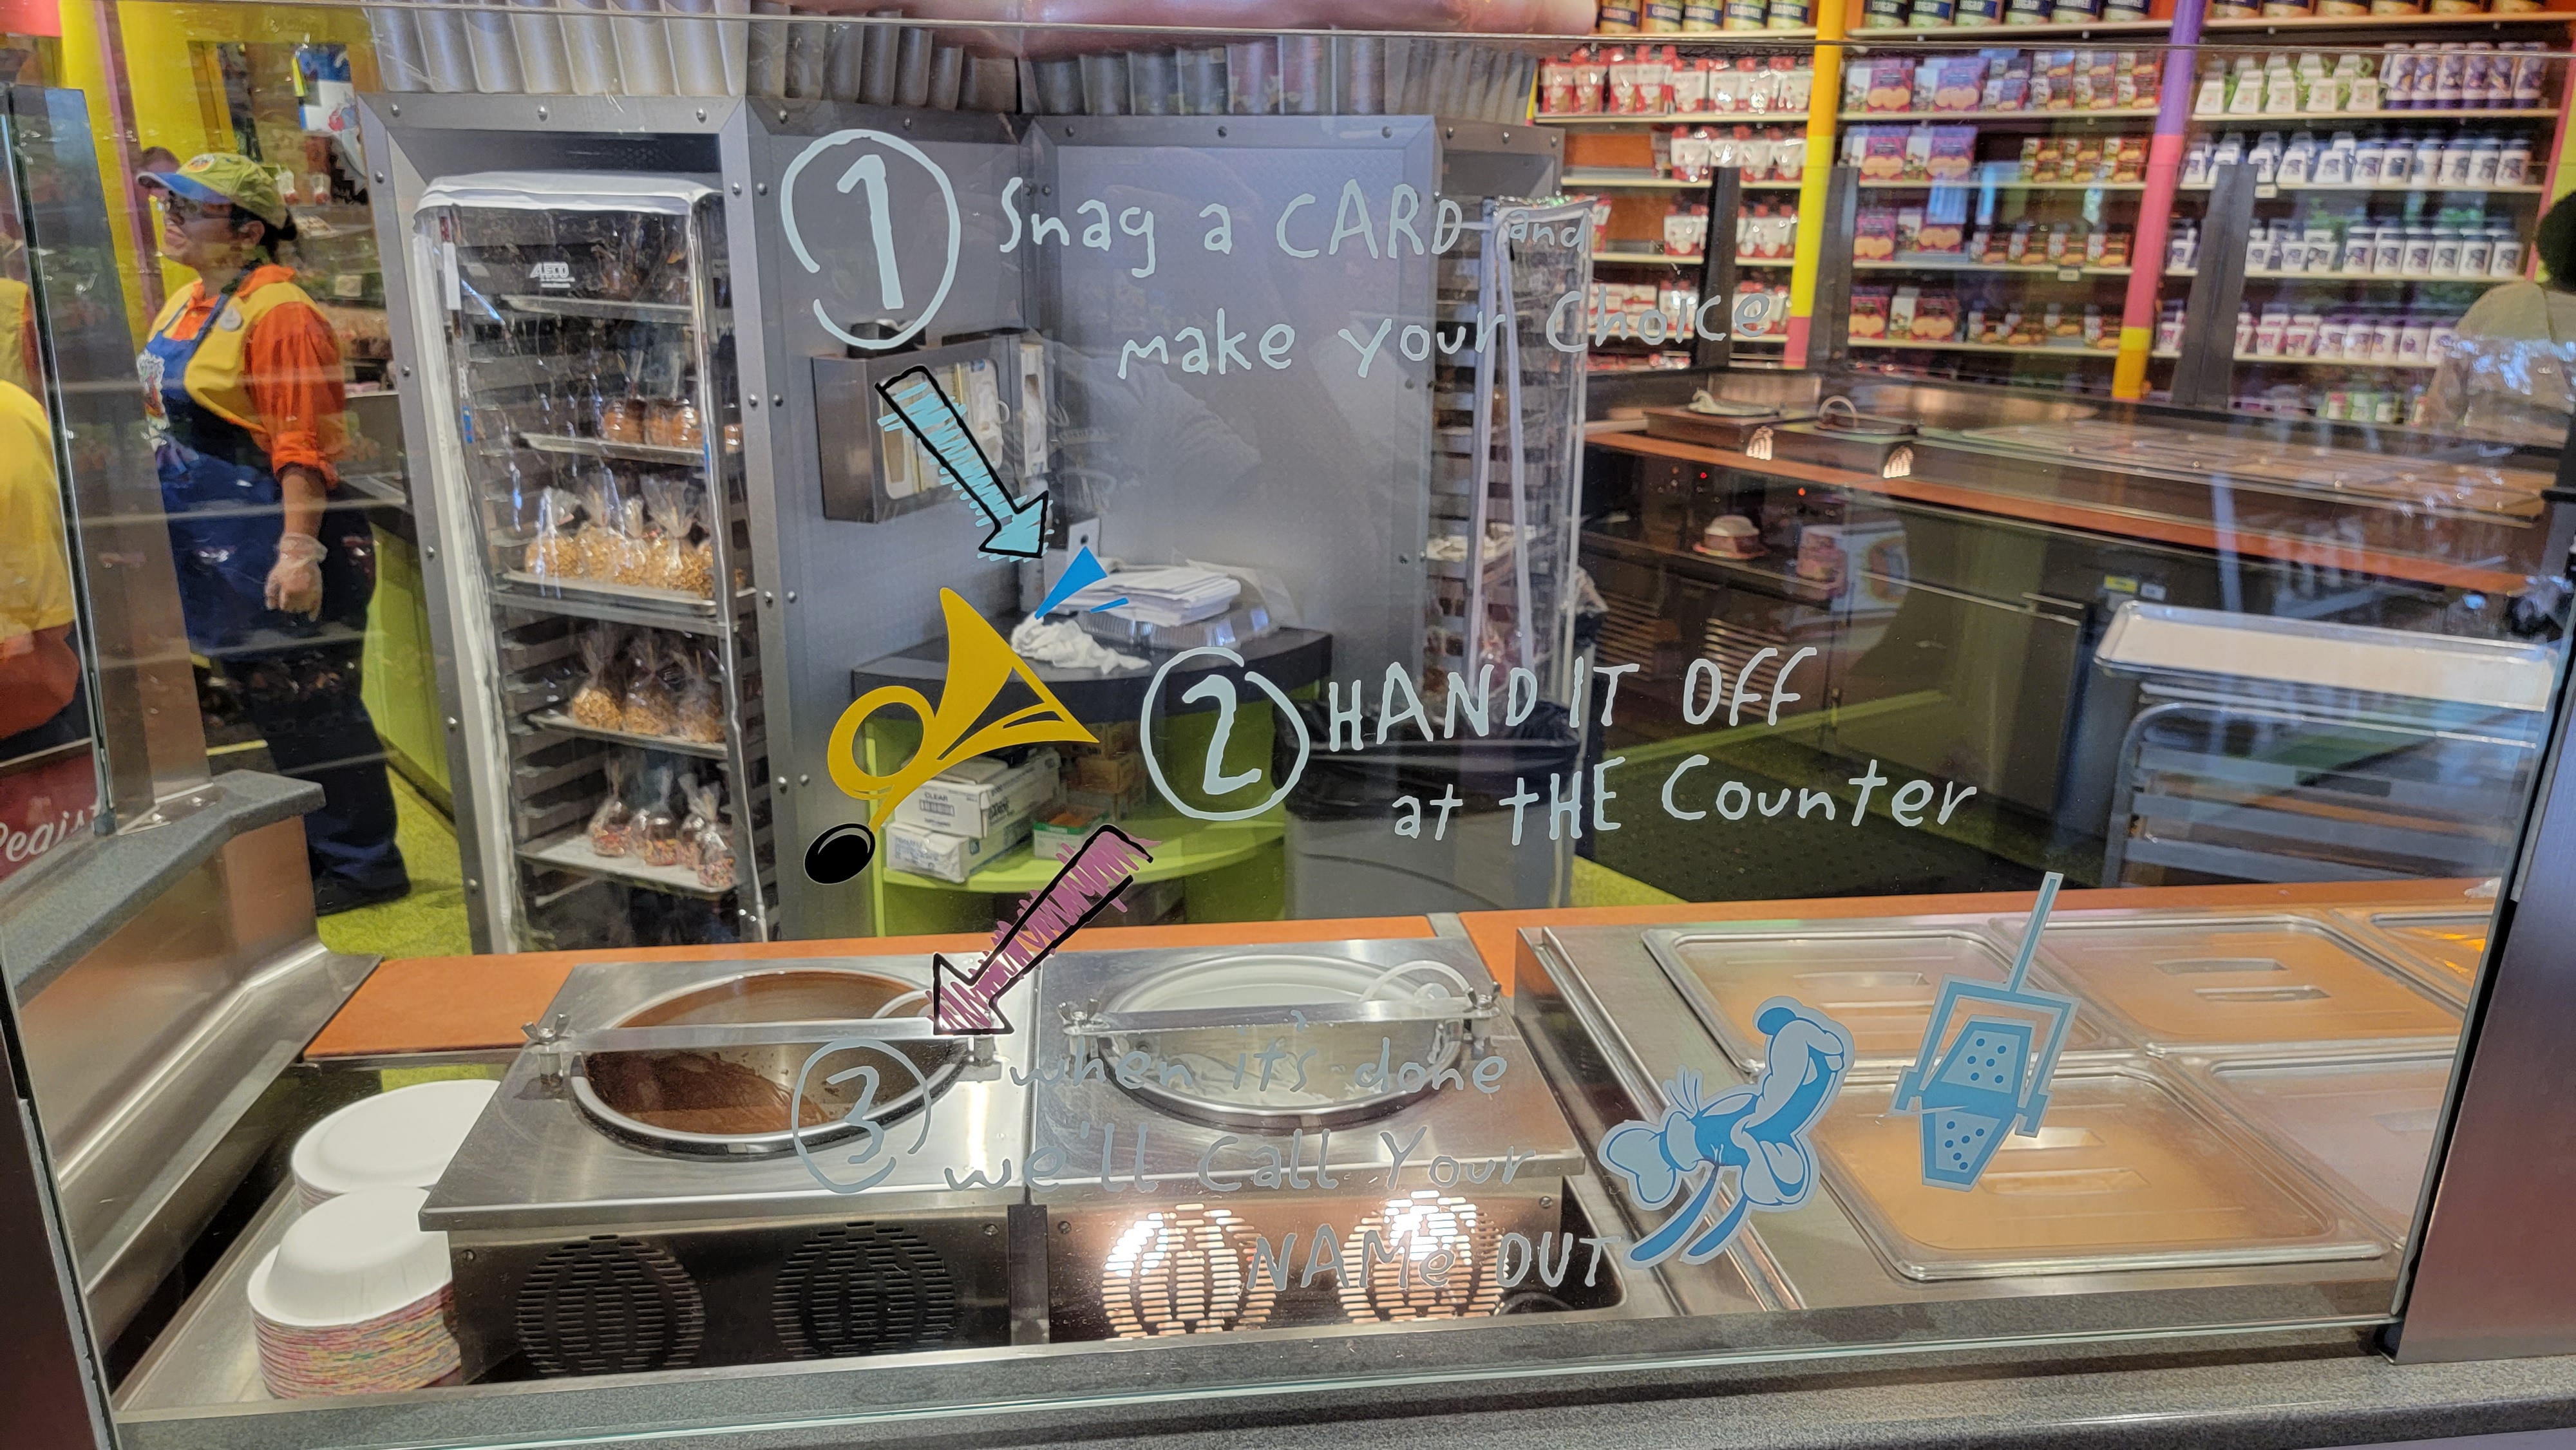 1 Snag a CARD and
make your Choice
2 HAND IT OFF
at tHE Counter
3 when it's done
we'll Call Your
NAMe OUT
ALECO
CLEAR